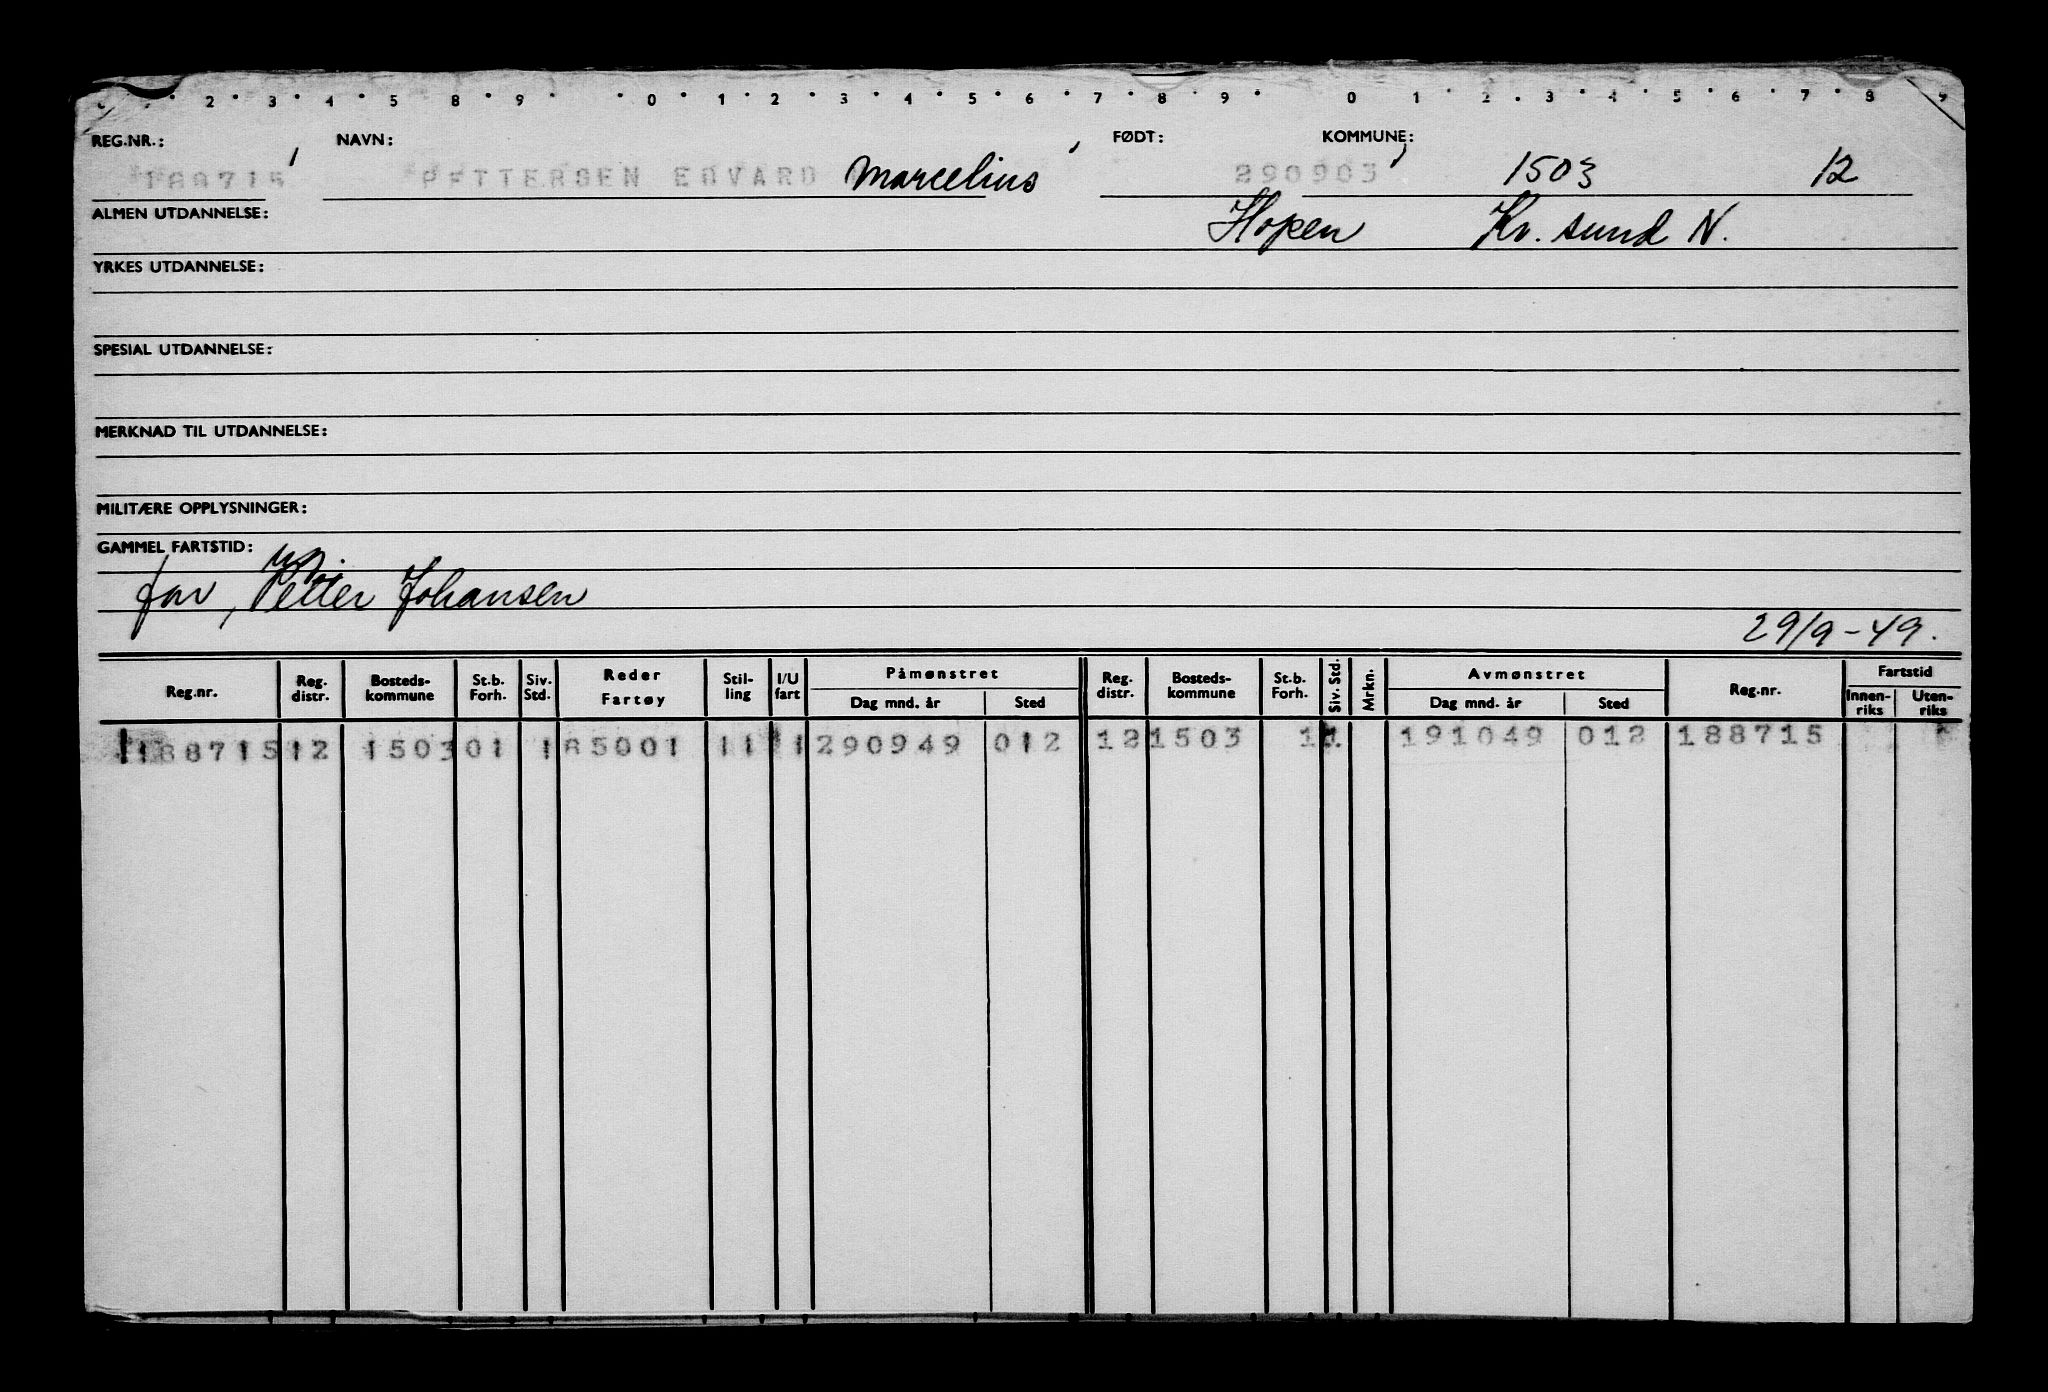 2 3 4 5 8 9 0 1 2 3 4 5 6 7 8 9 0 1 2 3 4 5 6 7 8 9
REG.NR.: NAVN: FØDT: KOMMUNE:
188715 PETTERSEN EDVARD Marcelius 290903 1503 12
ALMEN UTDANNELSE: Hopen Kr. sund N.
YRKES UTDANNELSE:
SPESIAL UTDANNELSE:
MERKNAD TIL UTDANNELSE:
MILITÆRE OPPLYSNINGER:
GAMMEL FARTSTID:
far, Petter Johansen
29/9-49.
Reg.nr. Reg. distr. Bosteds-kommune St.b. Forh. Siv. Std. Reder Fartøy Stil-ling I/U fart Påmønstret Dag mnd. år Sted Reg. distr. Bosteds-kommune St.b. Forh. Siv. Std. Mrkn. Avmønstret Dag mnd. år Sted Reg.nr. Fartstid Innen-riks Uten-riks
188715 12 1503 01 1 85001 11 1 290949 012 12 1503 1 1. 191049 012 188715